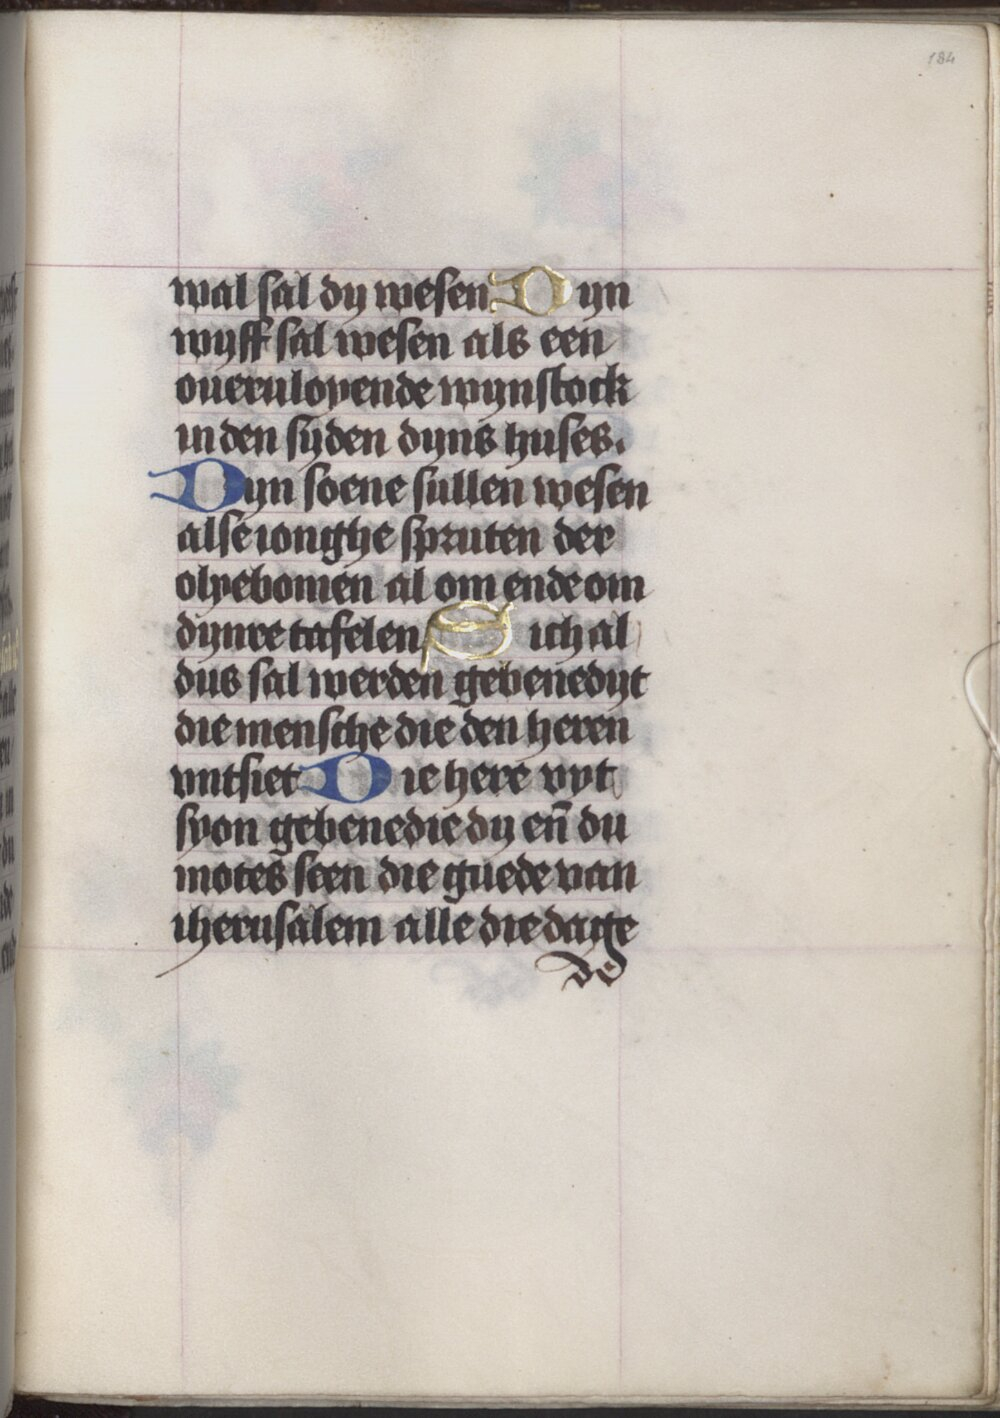 184
wal sal dy wesen Dyn
wyff sal wesen als een
oueruloyende wynstock
in den syden dyns huses.
Dyn soene sullen wesen
alse ionghe spruten der
olyebomen al om ende om
dynre tafelen Sich al
dus sal werden gebenedyt
die mensche die den heren
vntsiet Die here vyt
syon gebenedie dy en̄ du
motes seen die guede van
iherusalem alle die dage
de